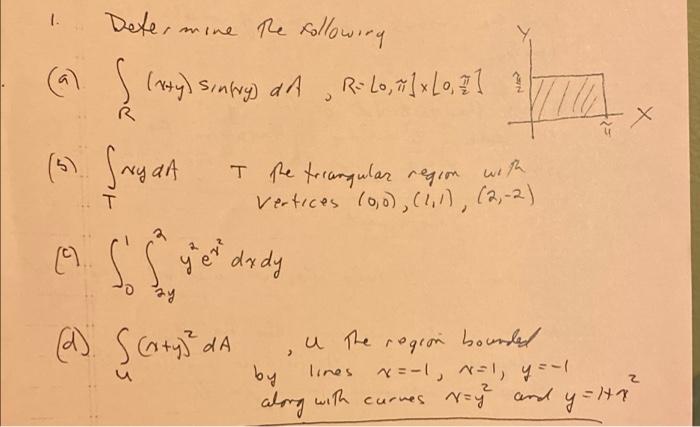 1. Determine the following
(a) ∫_R (x+y) sin(xy) dA , R = [0, π] x [0, π/2]
Y
π/2
π
X
(b) ∫_T xy dA T the triangular region with
vertices (0,0), (1,1), (2,-2)
(c) ∫_0^1 ∫_{2y}^2 y^2 e^{x^2} dx dy
(d) ∫_U (x+y)^2 dA , U the region bounded
by lines x = -1, x = 1, y = -1
along with curves x = y^2 and y = 1 + x^2